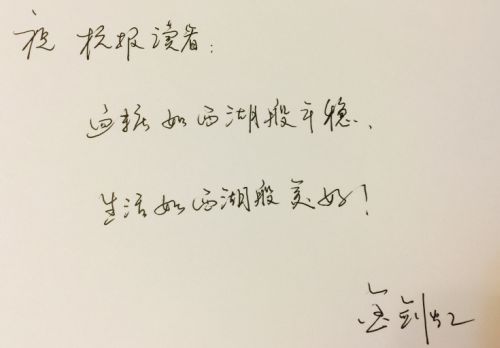 祝杭报读者:
血糖如西湖般平稳、
生活如西湖般美好!
金剑虹